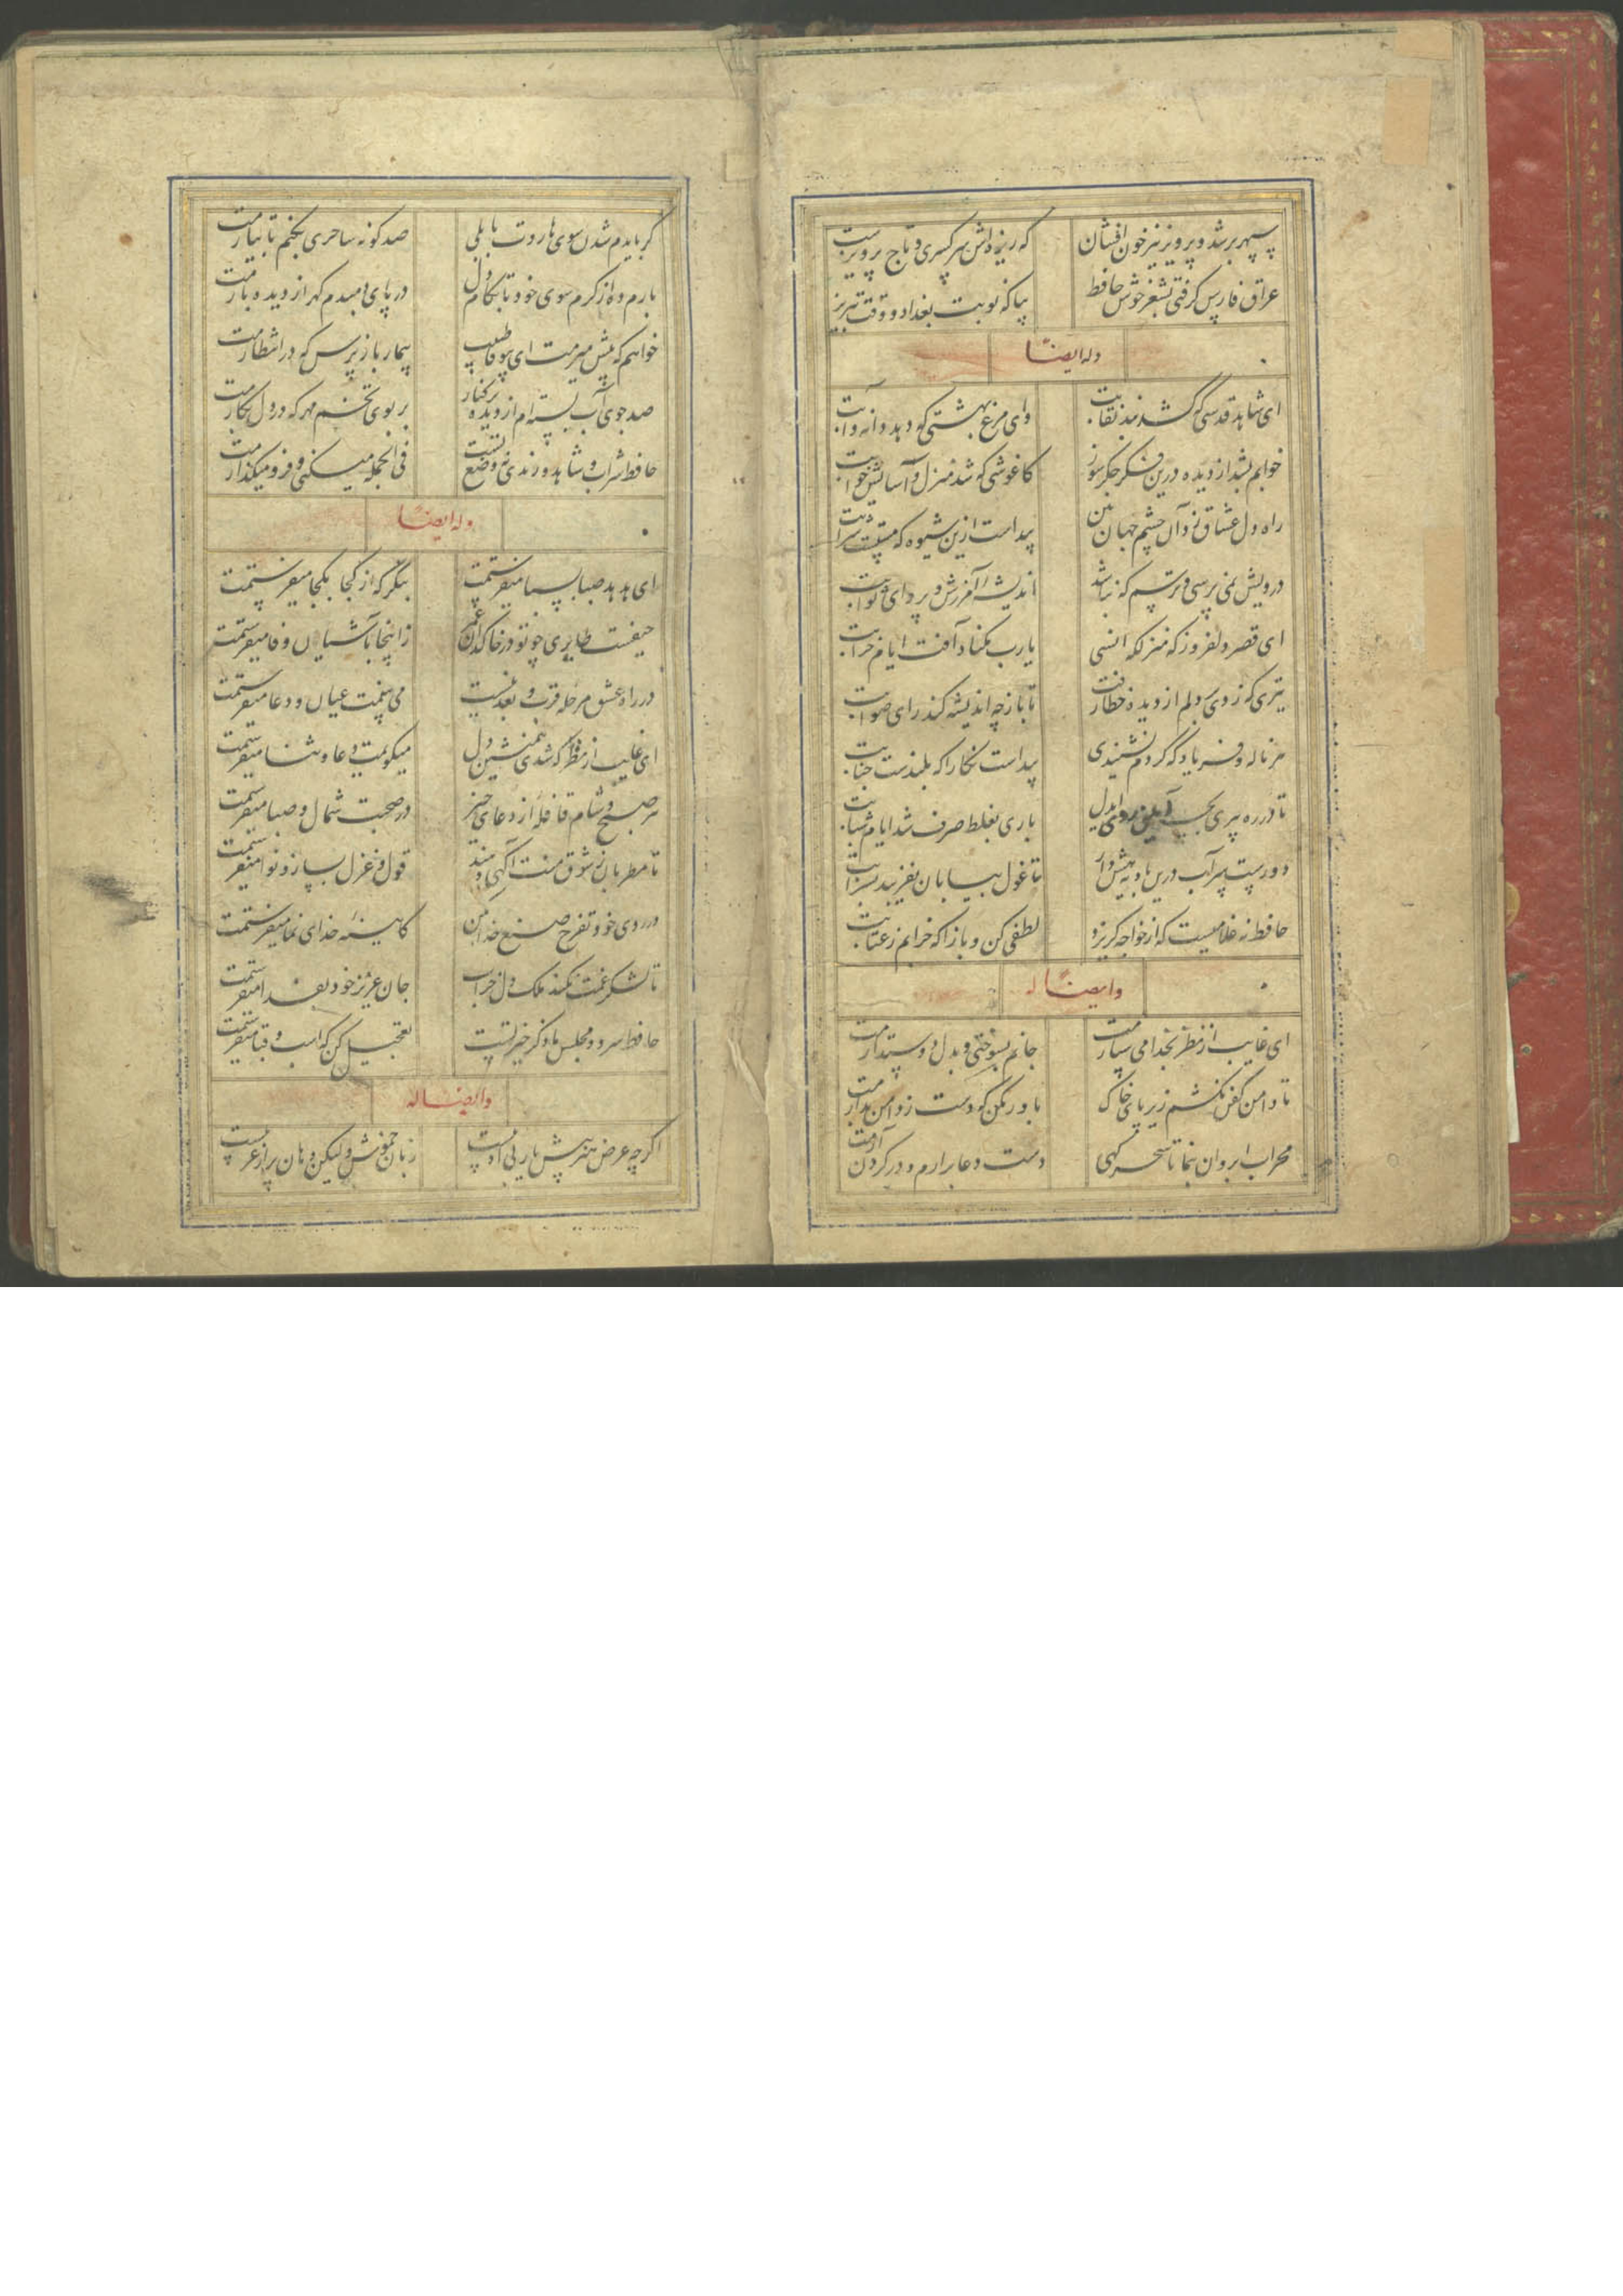 سپهر بر شد و پرویز نیز خون افشان که ریزه اش سر کسری و تاج پرویزست
عراق فارس کرفتی بشعر خوش حافظ بیا که نوبت بغداد و وقت تبریز
وله ایضاً
ای شاهد قدسی که کشد بند نقابت وای مرغ بهشتی که دهد دانه و آبت
خوابم بشد از دیده درین فکر جکرسوز کاغوش که شد منزل و آسایش خوابت
راه دل عشاق زد آن چشم جهان بین پیداست ازین شیوه که مستست شرابت
درویش نمی پرسی و ترسم که نباشد اندیشه آمرزش و پروای ثوابت
ای قصر دلفروز که منزلکه انسی یارب مکناد آفت ایام خرابت
تیری که زدی بر دلم از دیده خطا رفت تا باز چه اندیشه کند رای صوابت
هر ناله و فریاد که کردم نشنیدی پیداست نکارا که بلندست جنابت
تا در ره پیری بچه آیین روی ای دل باری بغلط صرف شد ایام شبابت
دورست سر آب درین بادیه هش دار تا غول بیابان نفریبد بسرابت
حافظ نه غلامیست که از خواجه کریزد لطفی کن و بازا که خرابم ز عتابت
وایضاً له
ای غایب از نظر بخدا می سپارمت جانم بسوختی و بدل دوستدارمت
تا دامن کفن نکشم زیر پای خاک باور مکن که دست ز دامن بدارمت
محراب ابروان بنما تا سحرکهی دست دعا برارم و در کردن آرمت
کر بایدم شدن سوی هاروت بابلی صد کونه ساحری بکنم تا بیارمت
بارم ده از کرم سوی خود تا بکام دل در پای دمبدم کهر از دیده بارمت
خواهم که پیش میرمت ای بیوفا طبیب بیمار باز پرس که در انتظارمت
صد جوی آب بسته ام از دیده بر کنار بر بوی تخم مهر که در دل بکارمت
حافظ شراب و شاهد و رندی نه وضع تست فی الجمله میکنی و فرو میکذارمت
وله ایضاً
ای هدهد صبا بسبا میفرستمت بنکر که از کجا بکجا میفرستمت
حیفست طایری چو تو در خاکدان غم زاینجا بآشیان وفا میفرستمت
در راه عشق مرحله قرب و بعد نیست می بینمت عیان و دعا میفرستمت
ای غایب از نظر که شدی همنشین دل میکویمت دعا و ثنا میفرستمت
هر صبح و شام قافله از دعای خیر در صحبت شمال و صبا میفرستمت
تا مطربان ز شوق منت آکهی دهند قول و غزل بساز و نوا میفرستمت
در روی خود تفرج صنع خدا ببین کایینه خدای نما میفرستمت
تا لشکر غمت نکند ملک دل خراب جان عزیز خود بفدا میفرستمت
حافظ سرود مجلس ما ذکر خیر تست تعجیل کن که اسب و قبا میفرستمت
وایضاً له
اکرچه عرض هنر پیش یار بی ادبیست زبان خموش ولیکن دهان پر از عربیست